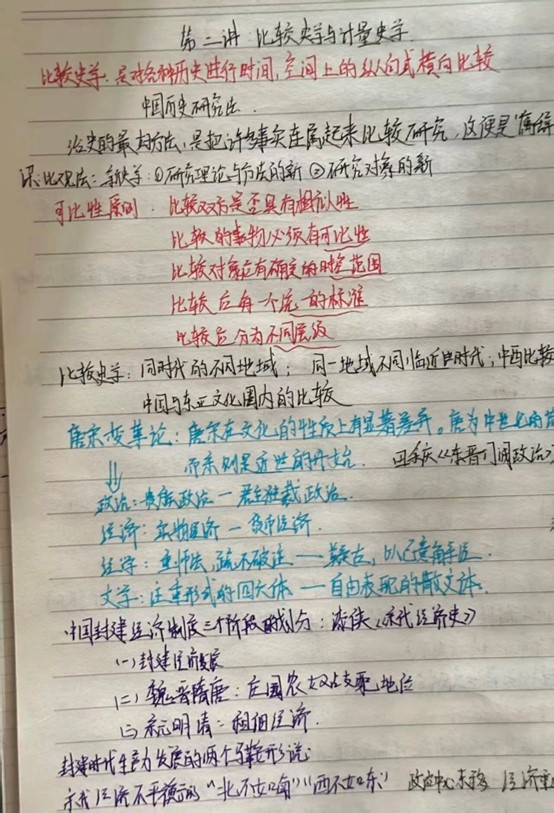 第二讲 比较史学与计量史学
比较史学：是对各种历史进行时间，空间上的纵向或横向比较
中国历史研究法.
治史的最大方法，是把许多事实连属起来比较研究，这便是"属辞
求比观法：新史学：①研究理论与方法的新 ②研究对象的新
可比性原则. 比较双方是否具有相似性
比较的事物必须有可比性
比较对象应有确定的时空范围
比较后每一个统一的标准
比较后分为不同层级
比较史学：同时代的不同地域；同一地域不同临近的时代；中西比较
中国与东亚文化圈内的比较
唐宋变革论：唐宋在文化的性质上有显著差异。唐为中世纪的
而宋则是近世的开始. 田余庆《东晋门阀政治》
政治：贵族政治—君主独裁政治.
经济：实物经济—货币经济.
经学：重师法，疏不破注——疑古，以己意解经.
文学：注重形式的四六体——自由表现的散文体.
中国封建经济制度三个阶段的划分：漆侠《宋代经济史》
(一)封建经济发展
(二)魏晋隋唐：庄园农奴制占支配地位
(三)宋元明清：租佃经济.
封建时代生产力发展的两个马鞍形说：
宋代经济不平衡 "北不如南""西不如东" 政治中心东移 经济重